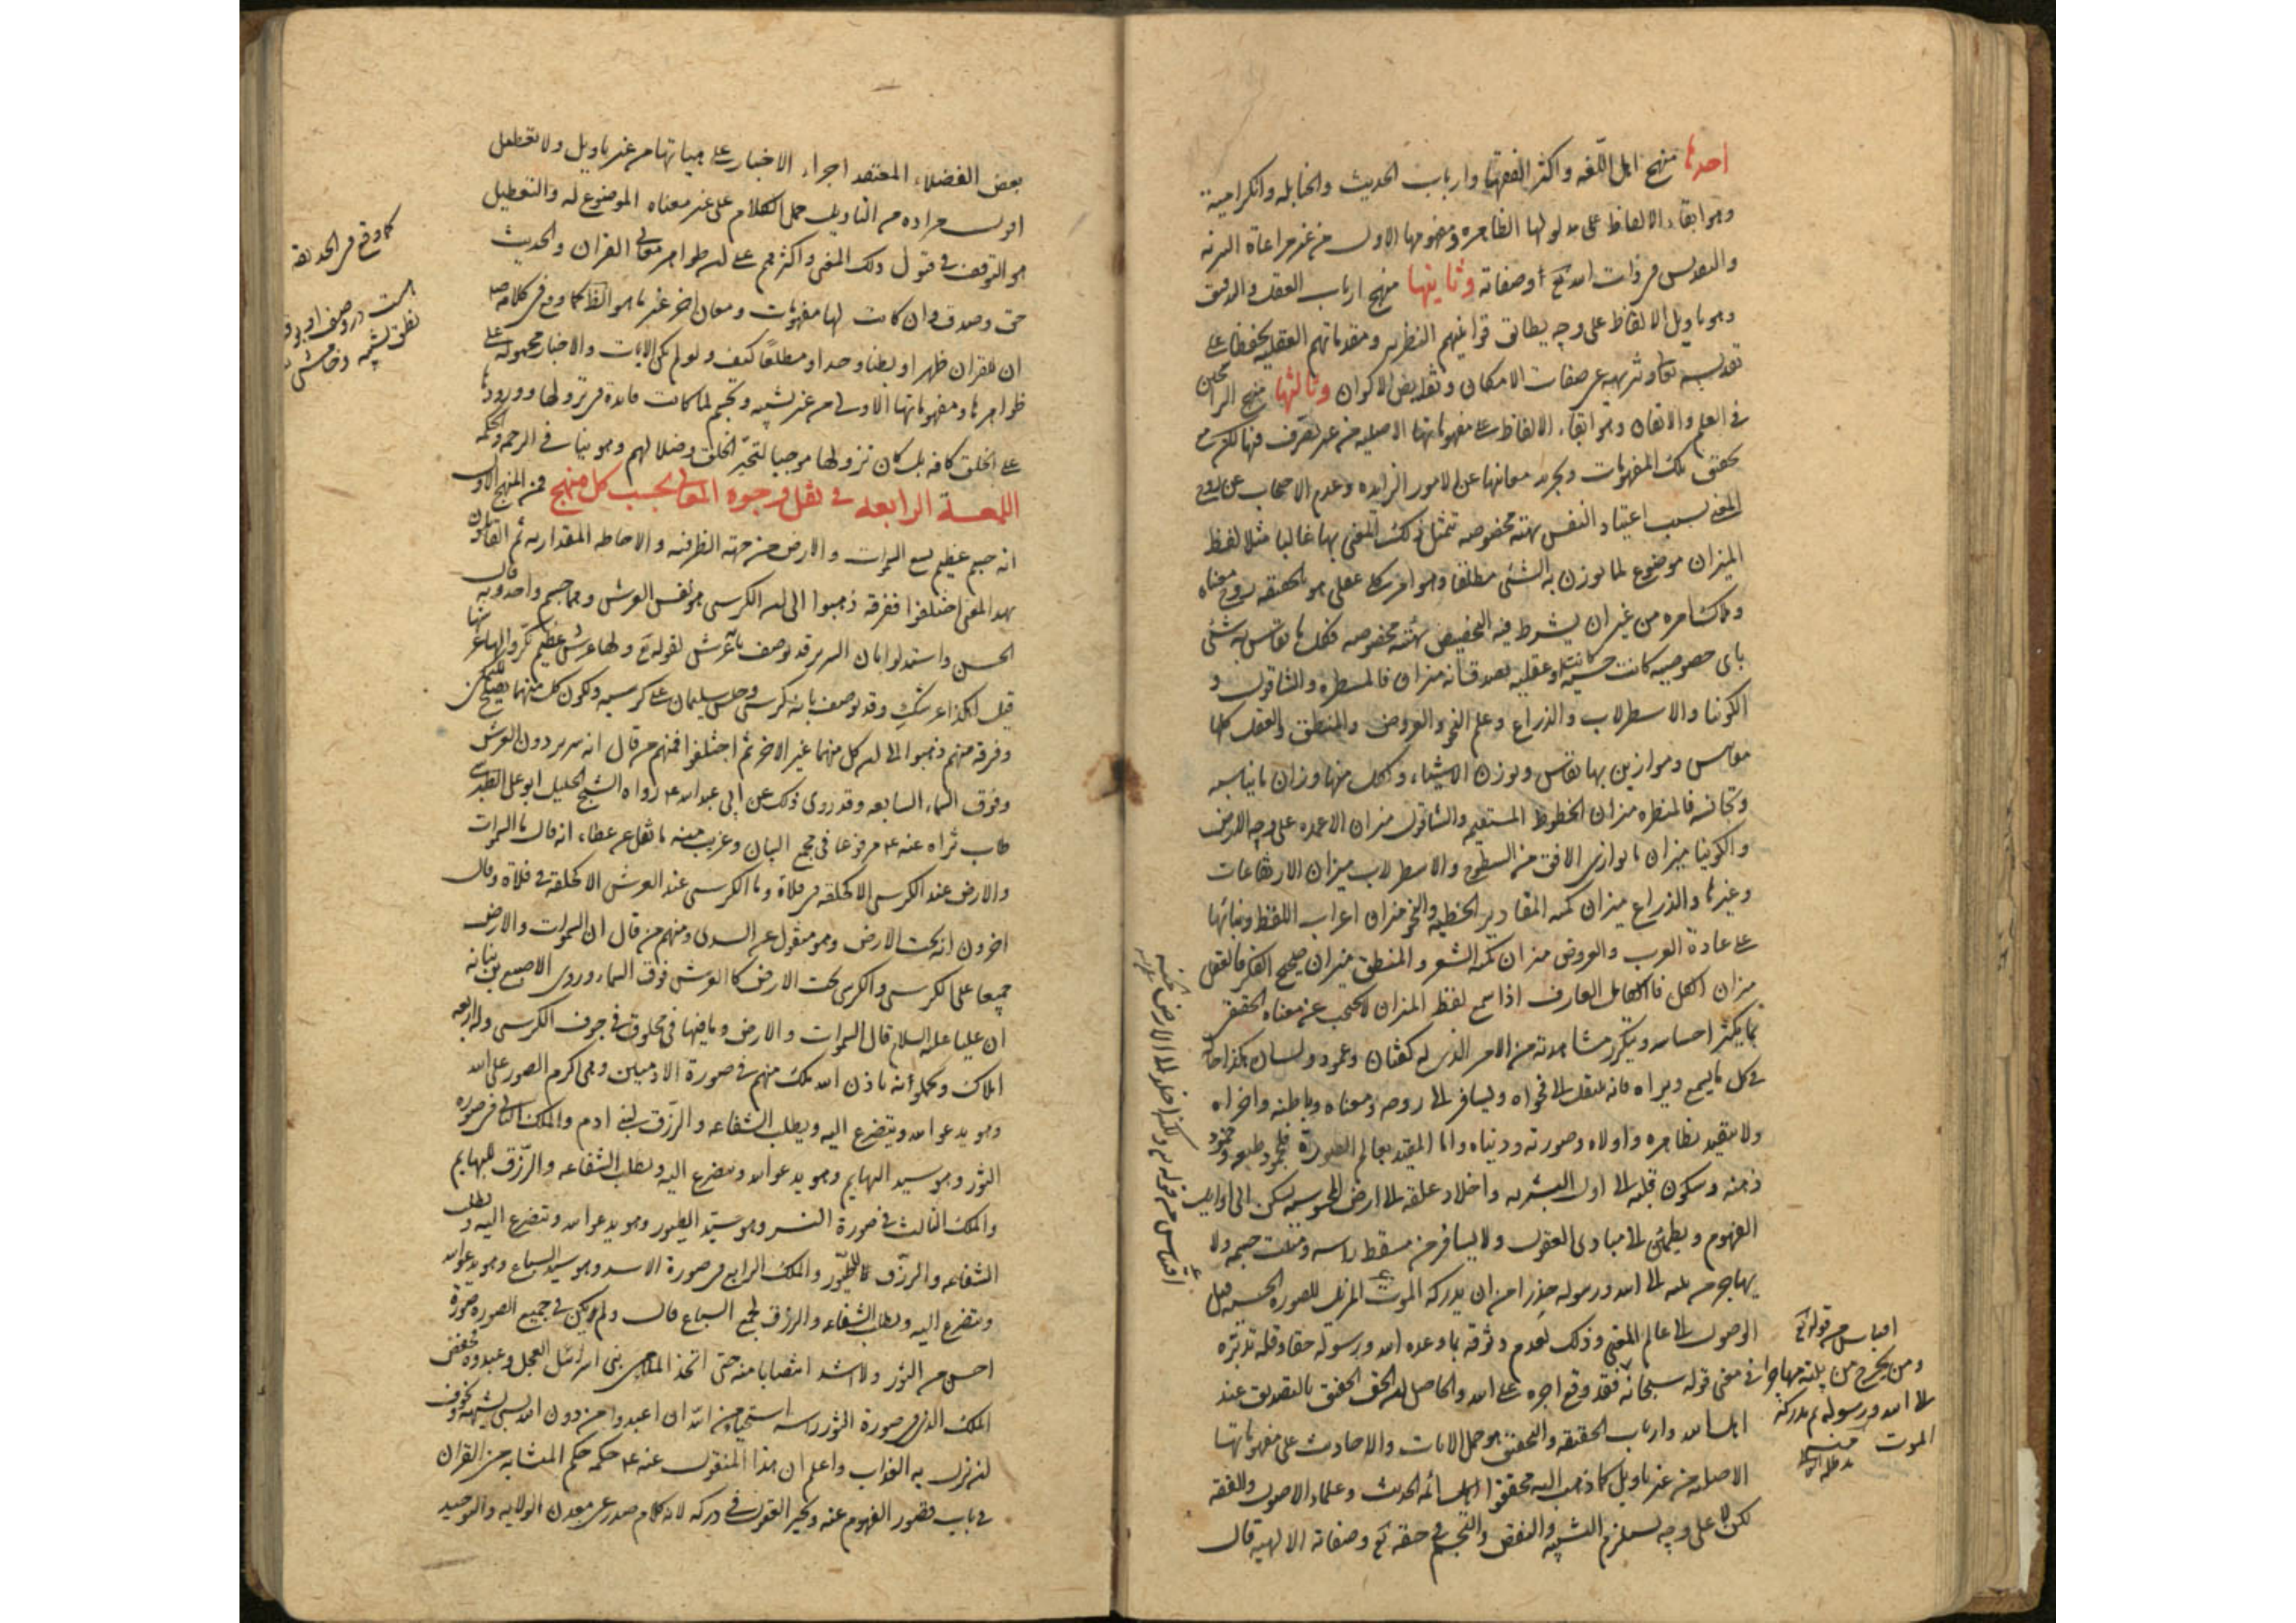 احدها منهج اهل اللغه واكثر الفقهاء وارباب الحديث والحنابله والكراميه
وهو ابقاء الالفاظ على مدلولها الظاهره ومفهومها الاول من غير مراعاة التنزيه
والتقديس فى ذات الله تع وصفاته وثانيها منهج ارباب العقل والتدقيق
وهو تاويل الالفاظ على وجه يطابق قوانينهم النظريه ومقدماتهم العقليه تحفظا على
تقديسه تعا وتنزيهه عن صفات الامكان ونقايص الاكوان وثالثها منهج الراسخين
فى العلم والاتقان وهو ابقاء الالفاظ على مفهوماتها الاصليه من غير تصرف فيها لكن مع
تحقيق تلك المفهومات وتجريد معانيها عن الامور الزايده وعدم الاحتجاب عن روح
المعنى بسبب اعتياد النفس بهيئه مخصوصه تتمثل ذلك المعنى بها غالبا مثلا لفظ
الميزان موضوع لما يوزن به الشئ مطلقا وهو امر كلى عقلى هو بالحقيقه روح معناه
وملاك امره من غير ان يشترط فيه التخصيص بهيئه مخصوصه فكل ما يقاس به شئ
باى خصوصيه كانت حسيه او عقليه يصدق انه ميزان فالمسطره والشاقول و
الكونيا والاسطرلاب والذراع وعلم النحو والعروض والمنطق والعقل كلها
مقاييس وموازين بها تقاس وتوزن الاشياء ولكل منها وزان ما يناسبه
وتجانسه فالمسطره ميزان الخطوط المستقيمه والشاقول ميزان الاعمده على وجه الارض
والكونيا ميزان ما يوازى الافق من السطوح والاسطرلاب ميزان الارتفاعات
وغيرها والذراع ميزان كميه المقادير الخطيه والنحو ميزان اعراب اللفظ وبنائها
على عادة العرب والعروض ميزان كميه الشعر والمنطق ميزان صحيح الفكر فالعقل
ميزان الكل فالكامل العارف اذا سمع لفظ الميزان لا يحتجب عن معناه الحقيقى
بما يكثر احساسه ويتكرر مشاهدته من الامر الذى له كفتان وعمود ولسان هكذا حاله
فى كل ما يسمع ويراه فانه ينتقل الى فحواه ويسافر الى روحه ومعناه وباطنه واخراه
ولا يتقيد بظاهره واولاه وصورته ودنياه واما المقيد بعالم الصورة فلجمود طبعه وخمود
ذهنه وسكون قلبه الى اول البشريه واخلاد عقله الى ارض المحسوسه يسكن الى اوايل
الفهوم ويطمئن الى مبادى العقول ولا يسافر من مسقط راسه ومنبت جسمه ولا
يهاجر من بيته الى الله ورسوله حذرا من ان يدركه الموت المزيل للصوره الحسيه قبل
الوصول الى عالم المعنى وذلك لعدم وثوقه بما وعده الله ورسوله حقا وقلة تدبره
فى معنى قوله سبحانه فقد وقع اجره على الله والحاصل ان الحق الحقيق بالتصديق عند
اهل الله وارباب الحقيقه والتحقيق هو حمل الايات والاحاديث على مفهوماتها
الاصليه من غير تاويل كما ذهب اليه محققوا ائمه الحديث وعلماء الاصول والفقه
لكن لا على وجه يستلزم التشبيه والنقص والتجسم فى حقه تع وصفاته الالهيه قال
اقتباس من قوله تع
ومن يخرج من بيته مهاجرا
الى الله ورسوله ثم يدركه
الموت منه
اقتباس من قوله تع ولكنه اخلد الى الارض
بعض الفضلاء المعتقد اجراء الاخبار على هيئاتها من غير تاويل ولا تعطيل
اقول مراده من التاويل حمل الكلام على غير معناه الموضوع له والتعطيل
هو التوقف فى قبول ذلك المعنى واكثرهم على ان ظواهر معانى القران والحديث
حق وصدق وان كانت لها مفهومات ومعان اخر غير ما هو الظاهر كما وقع فى كلامه ص
ان للقران ظهرا وبطنا وحدا ومطلعا كيف ولو لم يكن الايات والاخبار محموله على
ظواهرها ومفهوماتها الاولى من غير تشبيه وتجسم لما كانت فايدة فى نزولها وورودها
على الخلق كافه بل كان نزولها موجبا لتحير الخلق وضلالهم وهو ينافى الرحمه والحكمه
اللمعة الرابعه فى نقل وجوه المعانى بحسب كل منهج فمن المنهج الاول
انه جسم عظيم يسع السموات والارض من جهة الظرفيه والاحاطه المقداريه ثم القائلون
بهذا المعنى اختلفوا ففرقه ذهبوا الى ان الكرسى هو نفس العرش وهما جسم واحد وبه قال
الحسن واستدلوا بان السرير قد يوصف بالعرش لقوله تع ولها عرش عظيم نكروا لها عرشها
قيل اهكذا عرشك وقد يوصف بانه كرسى وجلس سليمان على كرسيه ولكون كل منهما يصلح للتمكن
وفرقه منهم ذهبوا الى ان كل منهما غير الاخر ثم اختلفوا فمنهم من قال انه سرير دون العرش
وفوق السماء السابعه وقد روى ذلك عن ابى عبد الله ع رواه الشيخ الجليل ابو على الطبرسى
طاب ثراه عنه ع مرفوعا فى مجمع البيان وقريب منه ما نقل عن عطاء انه قال ما السموات
والارض عند الكرسى الا كحلقه فى فلاة وما الكرسى عند العرش الا كحلقة فى فلاة وقال
اخرون انه تحت الارض وهو منقول عن السدى ومنهم من قال ان السموات والارض
جميعا على الكرسى والكرسى تحت الارض كالعرش فوق السماء وروى الاصبغ بن نباته
ان عليا عليه السلام قال السموات والارض وما فيها فى مخلوق فى جوف الكرسى وله اربعه
املاك يحملونه باذن الله ملك منهم فى صورة الادميين وهى اكرم الصور على الله
وهو يدعو الله ويتضرع اليه ويطلب الشفاعه والرزق لبنى ادم والملك الثانى فى صوره
الثور وهو سيد البهايم وهو يدعو الله ويتضرع اليه ويطلب الشفاعه والرزق للبهايم
والملك الثالث فى صورة النسر وهو سيد الطيور وهو يدعو الله ويتضرع اليه ويطلب
الشفاعه والرزق للطيور والملك الرابع فى صورة الاسد وهو سيد السباع وهو يدعو الله
ويتضرع اليه ويطلب الشفاعه والرزق لجميع السباع قال ولم يكن فى جميع الصور صورة
احسن من الثور ولا اشد انتصابا منه حتى اتخذ الملاء من بنى اسرائيل العجل وعبدوه فخفض
الملك الذى فى صورة الثور راسه استحياء من الله ان اعبدوا من دون الله بشئ يشبهه وتخوف
ان ينزل به العذاب واعلم ان هذا المنقول عنه ع حكمه حكم المتشابه من القران
فى باب قصور الفهوم عنه وتحير العقول فى دركه لانه كلام صدر عن معدن الولايه والتوحيد
كما وقع فى الحديقه
هست در وصف او بوقت
نطق تشبيه و خامشى